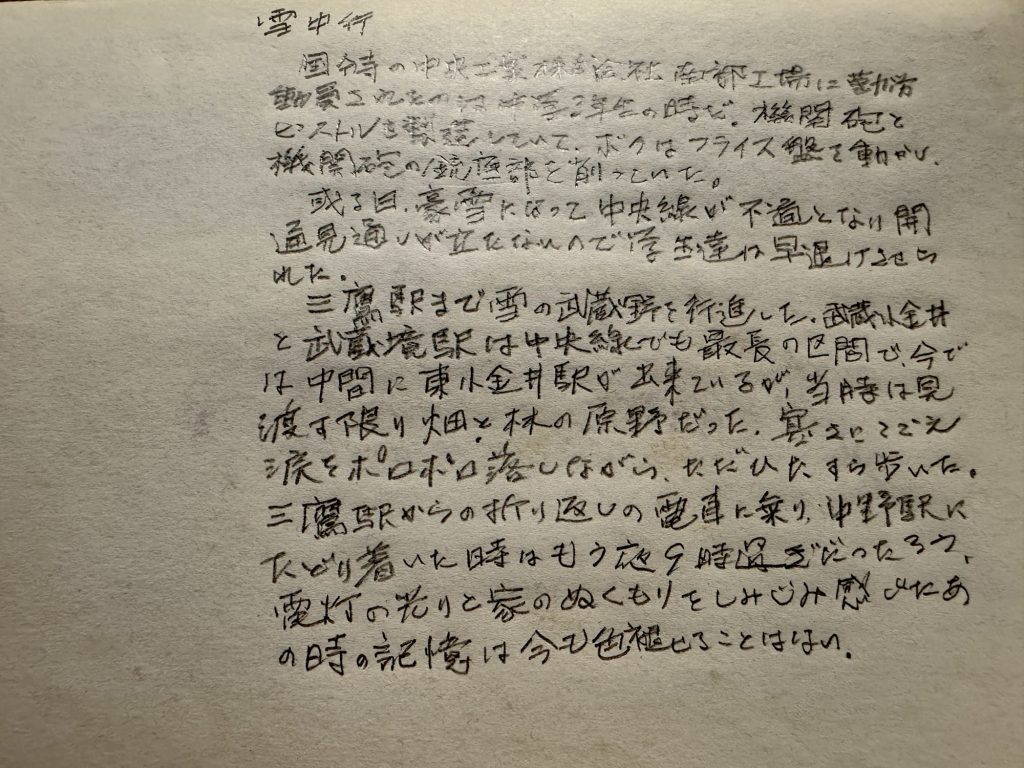 雪中行
国分寺の中央工業株式会社南部工場に勤労
動員されたのは中学2年生の時だ。機関砲と
ピストルを製造していて、ボクはフライス盤を動かし、
機関砲の銃座部を削っていた。
或る日、豪雪になって中央線が不通となり開
通見通しが立たないので学生達は早退けさせら
れた。
三鷹駅まで雪の武蔵野を行進した。武蔵小金井
と武蔵境駅は中央線でも最長の区間で、今で
は中間に東小金井駅が出来ているが、当時は見
渡す限り畑と林の原野だった。寒さにこごえ
涙をポロポロ落しながら、ただひたすら歩いた。
三鷹駅からの折り返しの電車に乗り、中野駅に
たどり着いた時はもう夜9時過ぎだったろう、
電灯の光りと家のぬくもりをしみじみ感じたあ
の時の記憶は今も色褪せることはない。